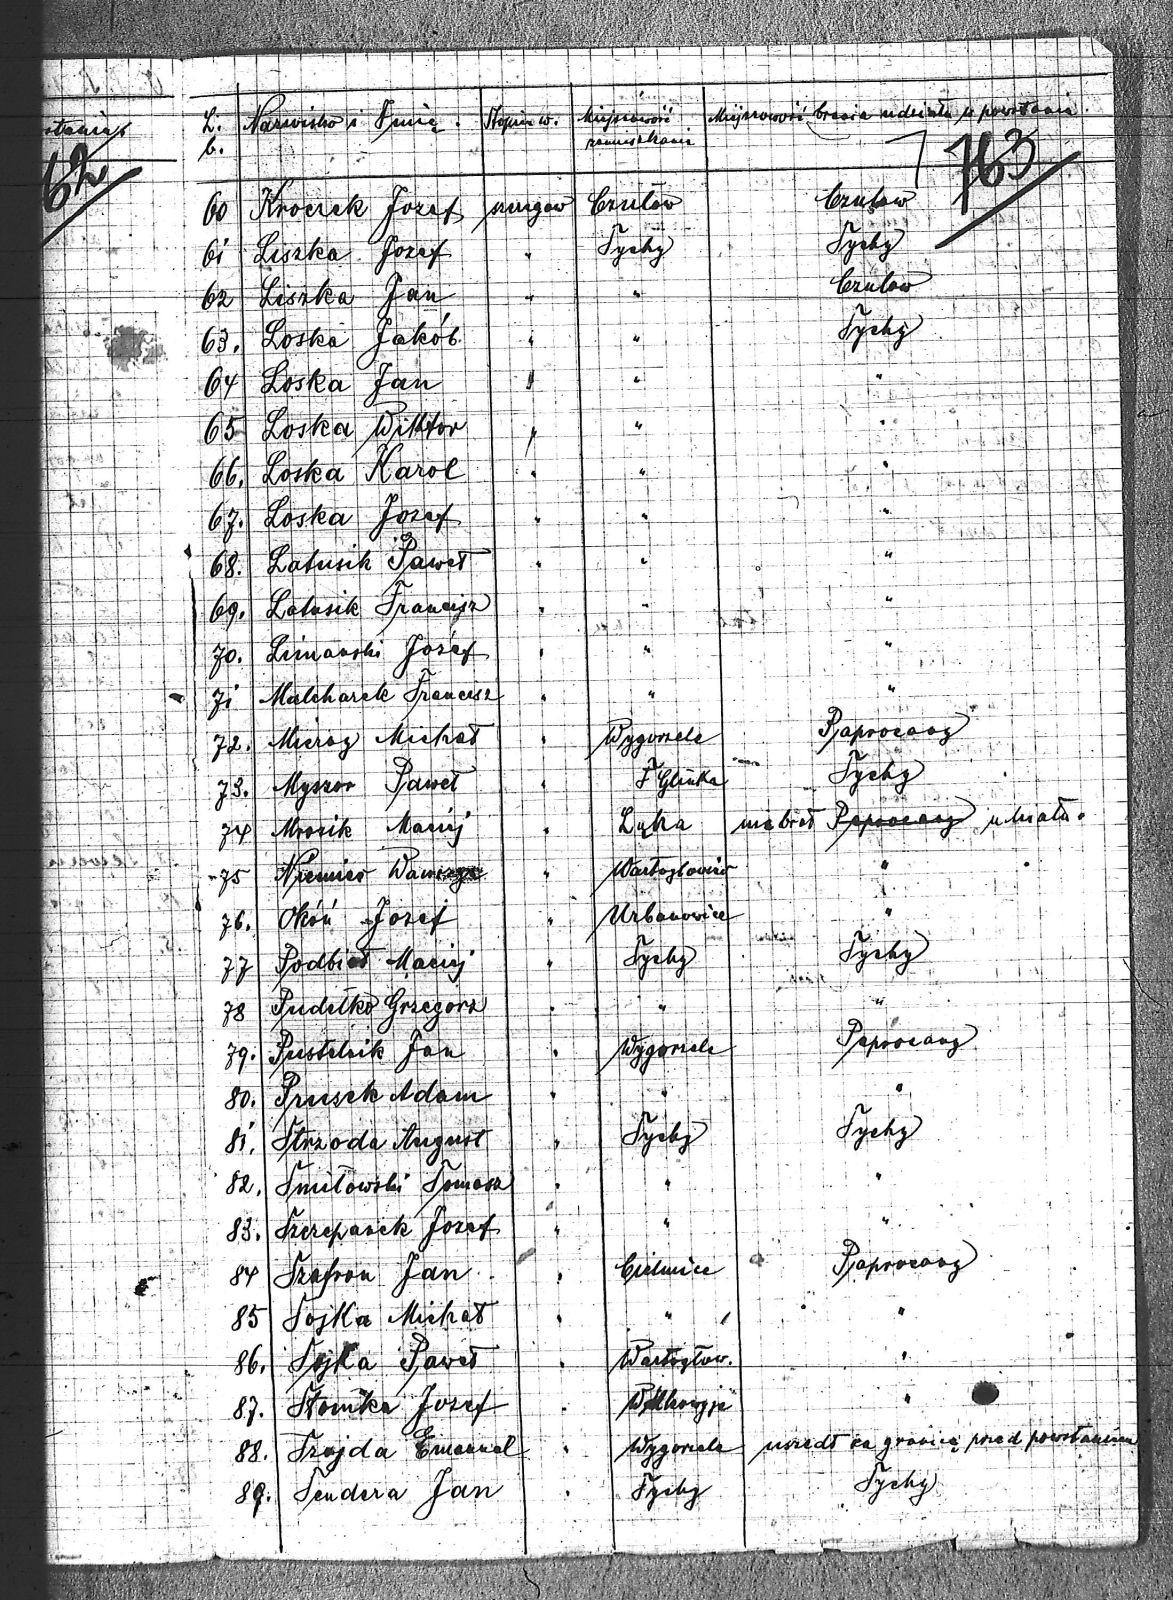 L. b. Nazwisko i Imię. Stopień w. Miejscowość zamieszkania Miejscowość brania udziału w powstaniu.
62 763
60 Kroczek Józef szeregow Czułów Czułow
61 Liszka Józef " Tychy Tychy
62 Liszka Jan " " Czułow
63. Loska Jakób " " Tychy
64 Loska Jan " " "
65 Loska Wiktor " " "
66. Loska Karol " " "
67. Loska Jozef " " "
68. Latusik Paweł " " "
69. Latusik Francisz " " "
70. Limanski Józef " " "
71 Malcharek Francisz " " "
72. Mieroy Michał " Wygorzele Paprocany
73. Myszor Paweł " F Glinka Tychy
74 Mrozik Maciej " Łąka nie brał Paprocany udziału.
75 Niemiec " Wartogłowiec "
76. Okóń Jozef " Urbanowice "
77 Podbioł Maciej " Tychy Tychy
78 Pudełko Grzegorz " " "
79. Pustelnik Jan " Wygorzele Paprocany
80. Prusek Adam " " "
81. Strzoda August " Tychy Tychy
82. Smiłowski Tomasz " " "
83. Szczepanek Jozef " " "
84 Szafron Jan " Cielmice Paprocany
85 Sojka Michał " " "
86. Sojka Paweł " Wartogłow. "
87. Słomka Jozef " Wilkowyje "
88. Szajda Emanuel " Wygorzele uszedł za granicę przed powstaniem
89. Sendera Jan " Tychy Tychy